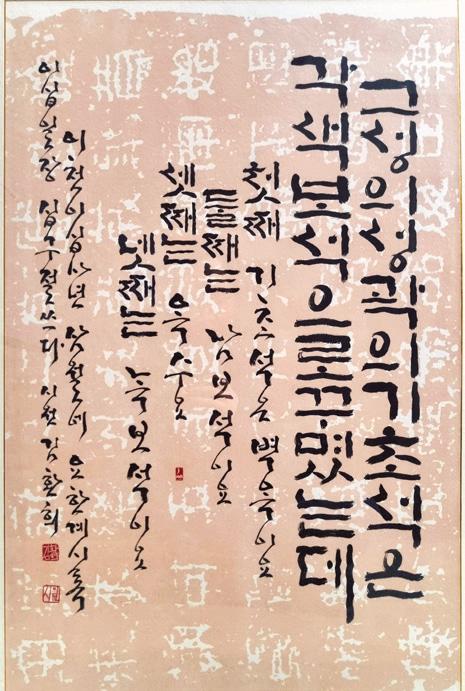 그성의성곽의기초석은
각색보석으로꾸몄는데
첫째 기초석은 벽옥이요
둘째는 남보석이요
셋째는 옥수요
넷째는 녹보석이요
이천이십사년 삼월에 요한계시록
이십일장 십구절 쓰다 김환희